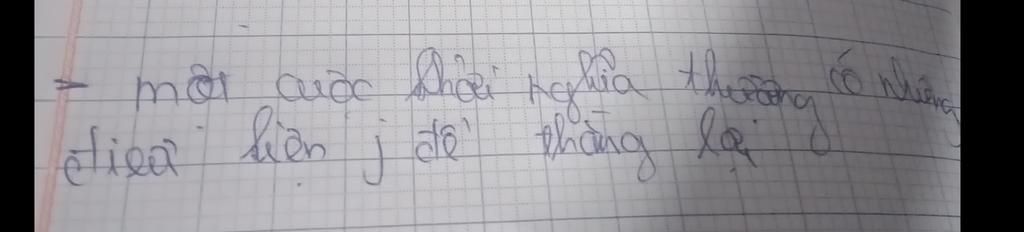 - một cuộc khởi nghĩa thường có những
điều kiện j để thắng lợi